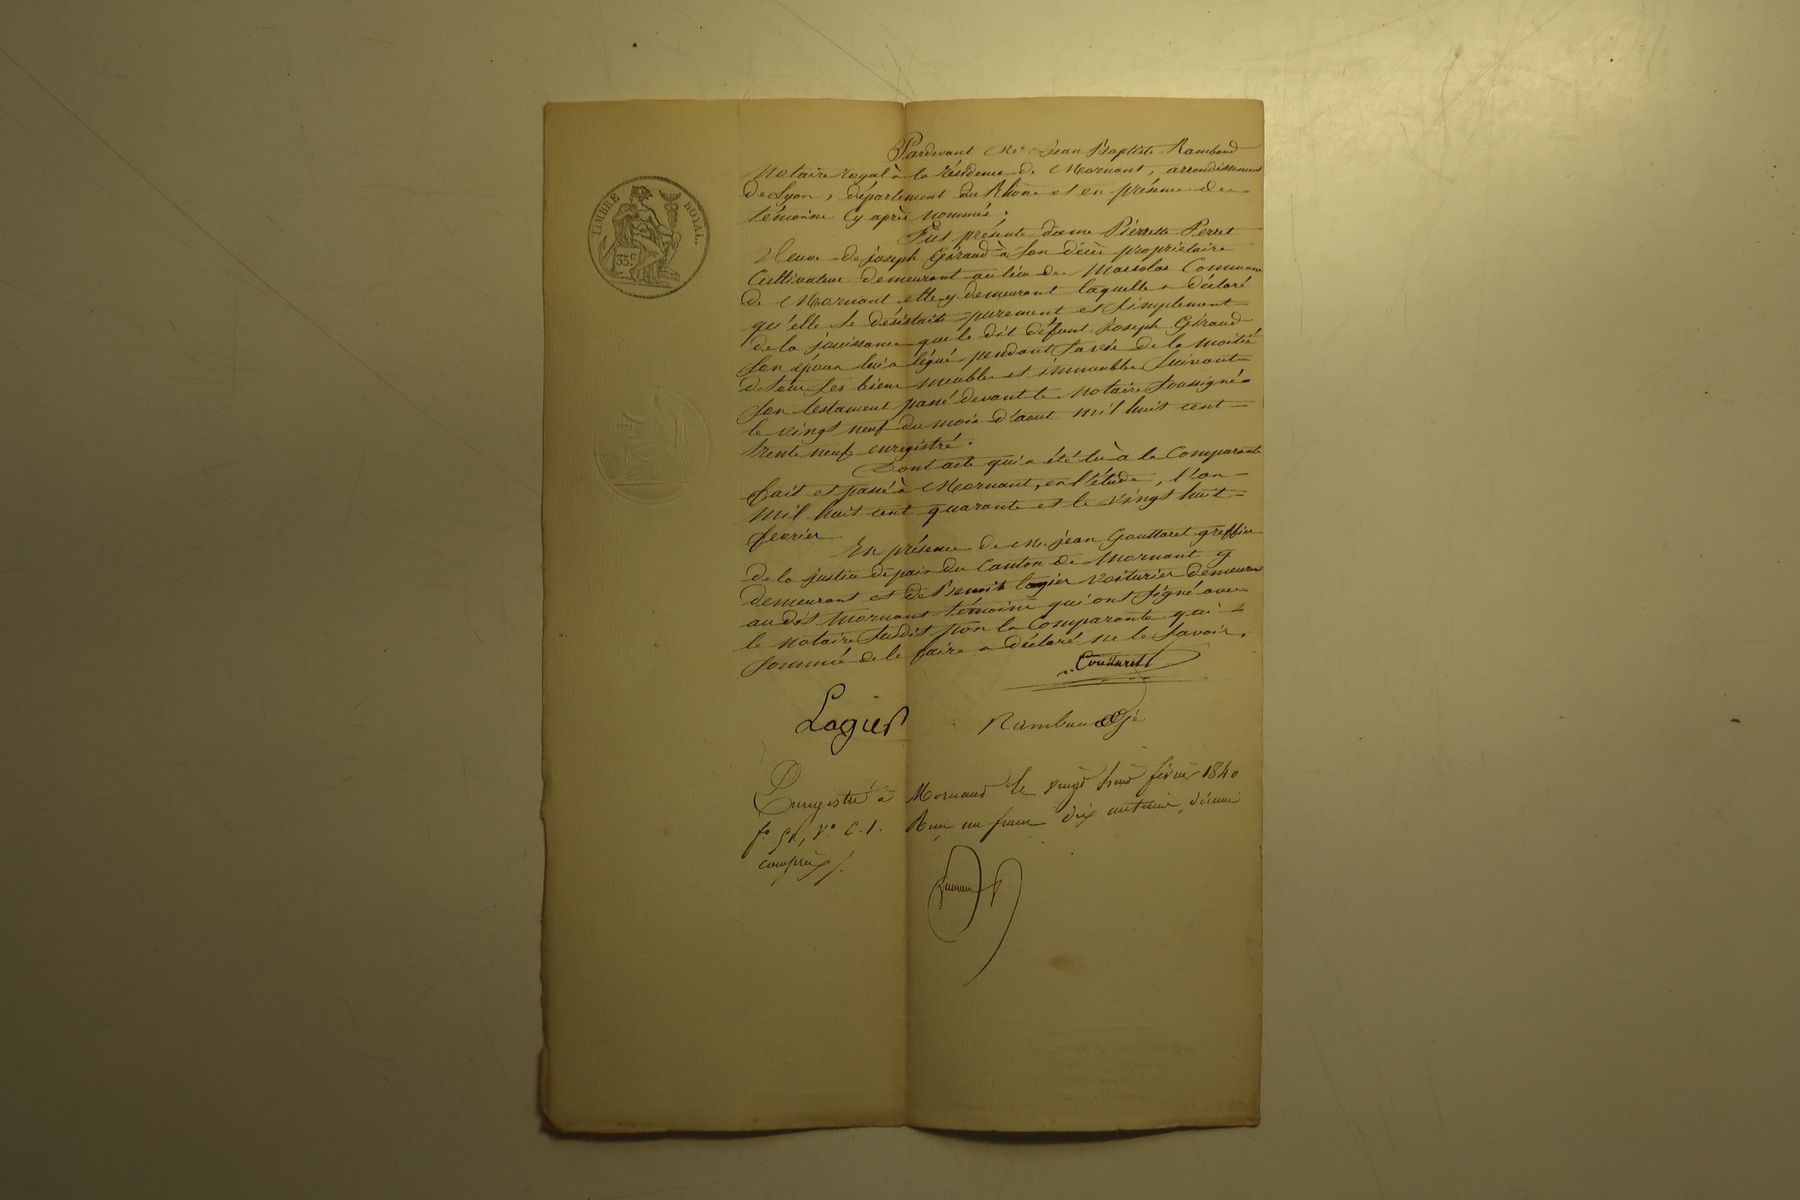 TIMBRE ROYAL.
35c
Pardevant Me Jean Baptiste Rambaud
Notaire royal à la résidence de Mornant, arrondissement
de Lyon, département du Rhône et en présence des
témoins cy après nommés.
Fut présente dame Pierrette Perret
Veuve de joseph Giraud à son décès propriétaire
Cultivateur demeurant au lieu de Massolas Commune
de Mornant elle y demeurant laquelle a déclaré
qu'elle se désistait purement et simplement
de la jouissance que le dit défunt Joseph Giraud
son époux lui a légué pendant sa vie de la moitié
de tous ses biens meubles et immeubles suivant
son testament passé devant le notaire soussigné
le vingt neuf du mois d'aout mil huit cent
trente neuf enregistré.
Dont acte qui a été lu à la Comparante
fait et passé à Mornant, en l'étude, l'an
mil huit cent quarante et le vingt huit
fevrier
En présence de Me jean Gouttaret greffier
de la justice de paix du Canton de Mornant y
demeurant et de Benoit Logier Voiturier demeurant
au dit Mornant témoins qui ont signé avec
le notaire susdit non la Comparante qui
sommée de le faire a déclaré ne le savoir.
Gouttaret
Logier
Rambaud
Enregistré à Mornant le vingt huit février 1840
fo Vo C. 1. Reçu un franc dix centimes, décime
compris